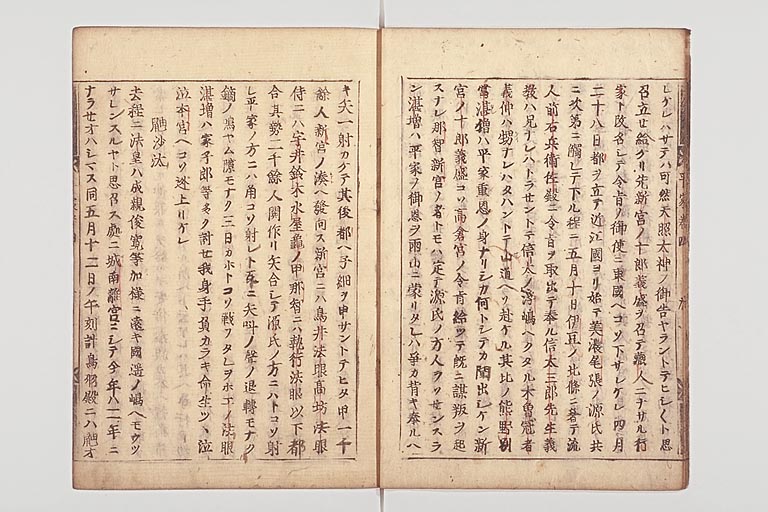 シケレハサテハ可然天照太神ノ御告ヤラントテヒシ〱ト思
召立セ給ケリ先新宮ノ十郎義盛ヲ召テ蔵人ニナサル行
家ト改名シテ令旨ノ御使ニ東國ヘコソ下サレケレ四月
二十八日都ヲ立テ近江國ヨリ始テ美濃尾張ノ源氏共
ニ次第ニ觸レテ下ル程ニ五月十日伊豆ノ北條ニ着テ流
人前右兵衛佐殿ニ令旨ヲ取出テ奉ル信太三郎先生義
教ハ兄ナレハトラサントテ信太ノ浮嶋ヘクタル木曽冠者
義仲ハ甥ナレハタハントテ山道ヘソ赴ケル其比ノ熊野別
當湛増ハ平家重恩ノ身ナリシカ何トシテカ聞出シケン新
宮ノ十郎義盛コソ高倉宮ノ令旨給ツテ既ニ謀叛ヲ起
スナレ那智新宮ノ者トモハ定テ源氏ノ方人ヲソセンスラ
ン湛増ハ平家ヲ御恩ヲ雨山ニ蒙リタレハ爭カ背キ奉ルヘ
キ矢一射カケテ其後都ヘ子細ヲ申サントテヒタ甲一千
餘人新宮ノ湊ヘ發向ス新宮ニハ鳥井法眼高坊法眼
侍ニハ宇井鈴木水屋龜ノ甲那智ニハ執行法眼以下都
合其勢二千餘人閧作リ矢合シテ源氏ノ方ニハトコソ射
レ平家ノ方ニハ角コソ射レト互ニ矢叫ノ聲ノ退轉モナク
鏑ノ鳴ヤム隙モナク三日カホトコソ戰フタレヲホエノ法眼
湛増ハ家子郎等多ク討セ我身手負カラキ命生ツヽ泣
泣本宮ヘコソ迯上リケレ
鼬沙汰
去程ニ法皇ハ成親俊寛等加様ニ遠キ國遥ノ嶋ヘモウツ
サレンスルヤト思召ス處ニ城南離宮ニシテ今年ハ二年ニ
ナラセオハシマス同五月十二日ノ午刻計鳥羽殿ニハ鼬オ